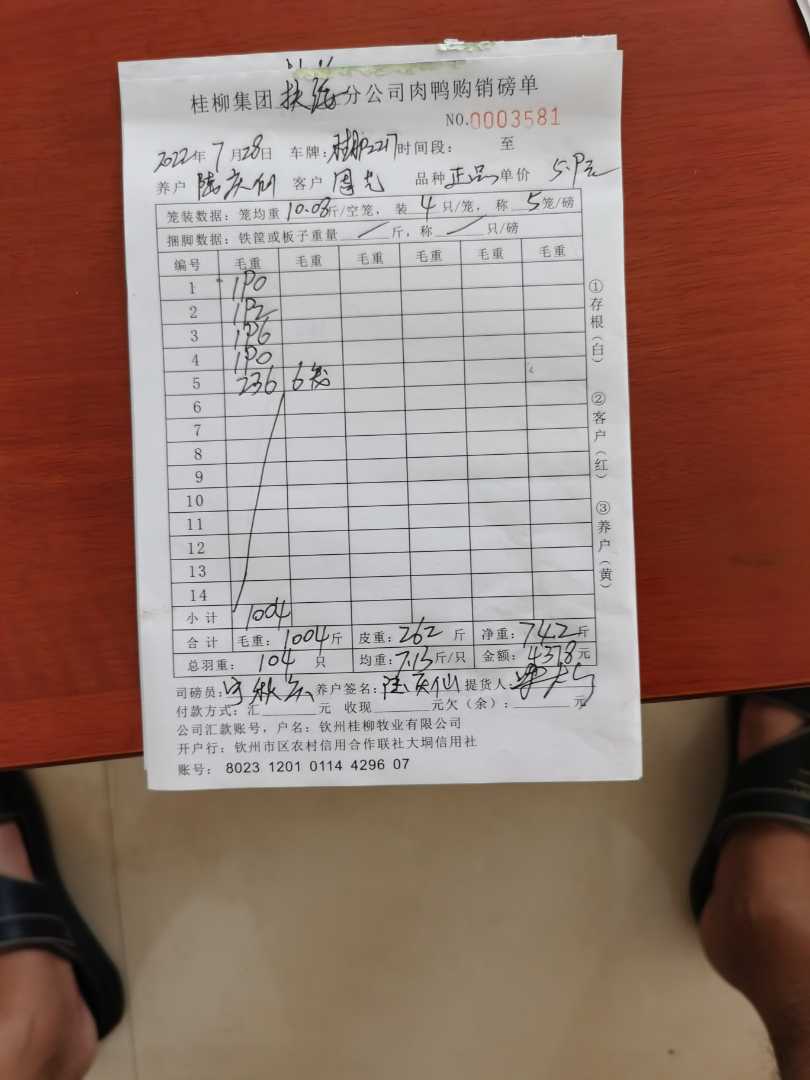 桂柳集团 分公司肉鸭购销磅单
NO.0003581
2022年7月28日 车牌: 时间段: 至
养户 陆庆仙 客户 周光 品种 正品 单价 5.9元
笼装数据: 笼均重 10.08斤/空笼, 装 4 只/笼, 称 5笼/磅
捆脚数据: 铁筐或板子重量 / 斤, 称 / 只/磅
编号 毛重 毛重 毛重 毛重 毛重 毛重
1 190
2 192
3 196
4 190
5 236 6笼
6
7
8
9
10
11
12
13
14
小计 1004
合计 毛重: 1004斤 皮重: 262 斤 净重: 742斤
总羽重: 104 只 均重: 7.13斤/只 金额: 4378元
司磅员: 养户签名: 陆庆仙 提货人
付款方式: 汇 元 收现 元欠(余): 元
公司汇款账号, 户名: 钦州桂柳牧业有限公司
开户行: 钦州市区农村信用合作联社大垌信用社
账号: 8023 1201 0114 4296 07
①存根(白)
②客户(红)
③养户(黄)